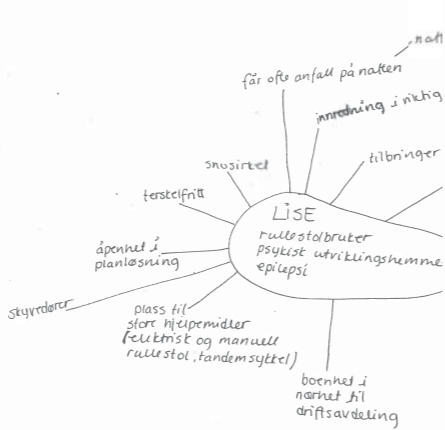 natt
får ofte anfall på natten
innredning i riktig
tilbringer
snusirkel
terskelfritt
LISE
rullestolbruker
psykist utviklingshemme
epilepsi
åpenhet i
planløsning
skyvedører
plass til
store hjelpemidler
(elektrisk og manuell
rullestol, tandemsykkel)
boenhet i
nærhet til
driftsavdeling